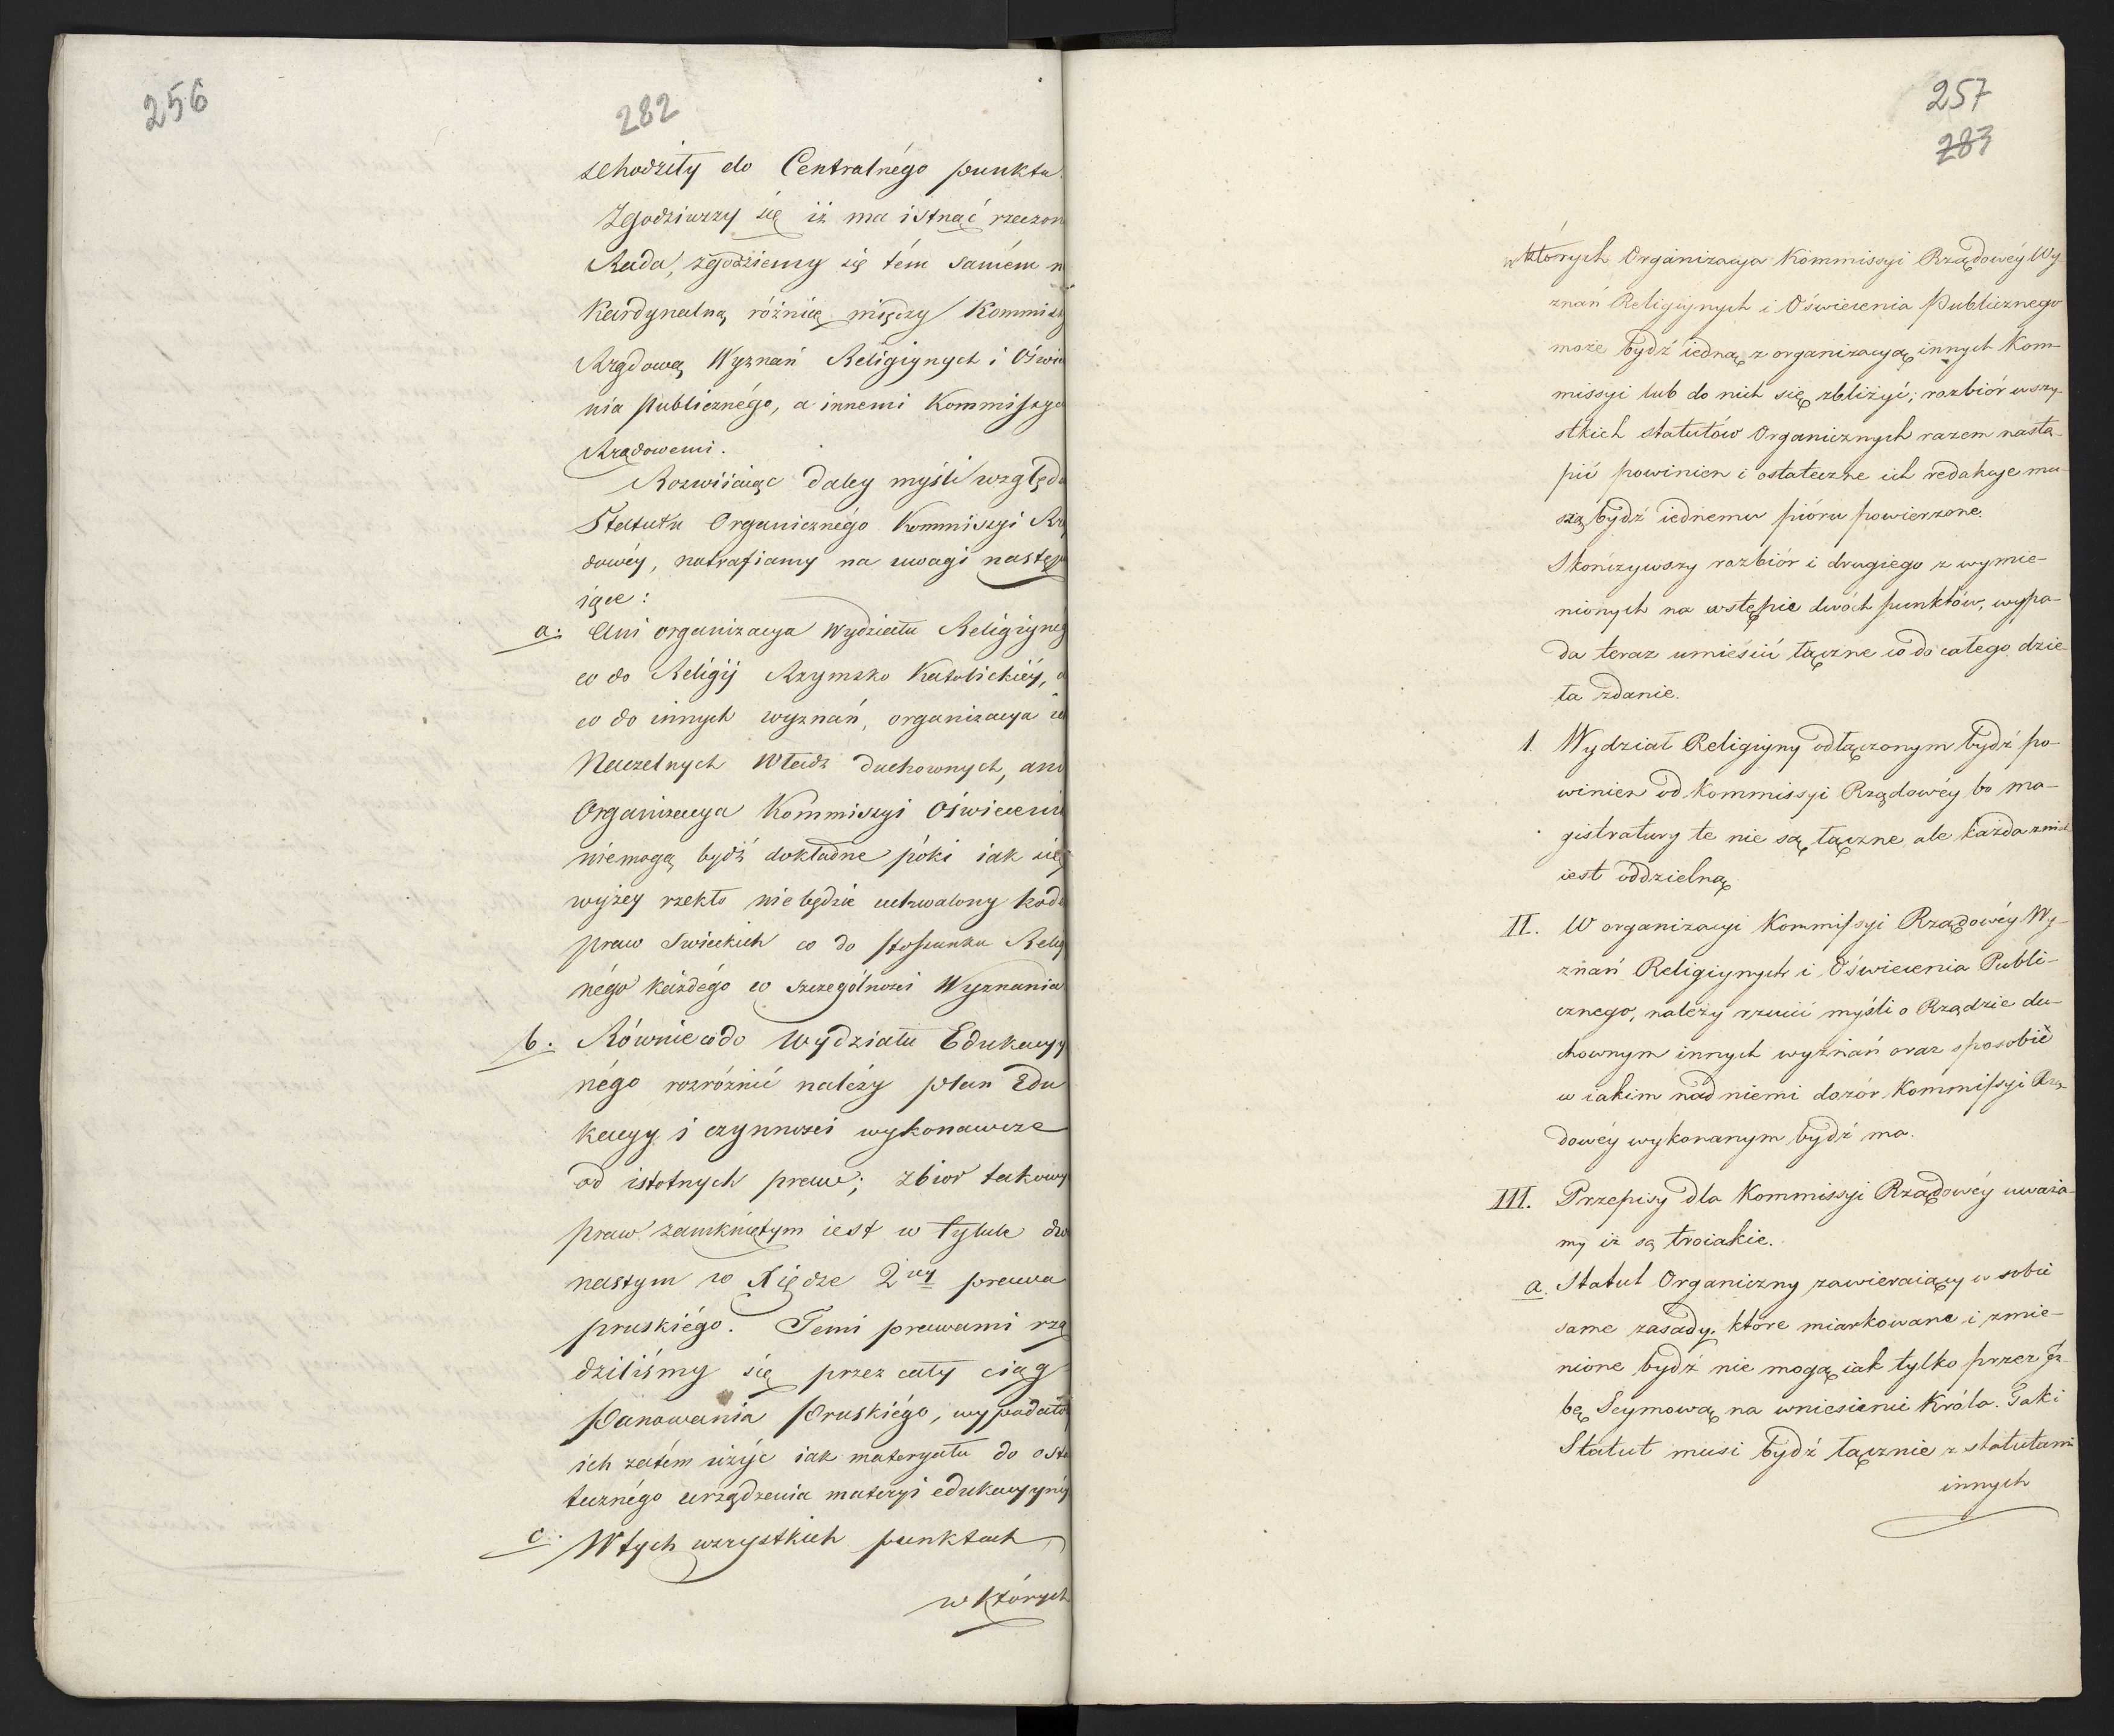 256
282
schodziły do Centralnégo punktu.
Zgodziwszy się iż ma istnąć rzeczon
Rada, zgodziemy się tém samém n
Kardynalną różnicę między Kommissy
Rządową Wyznań Religiynych i Oświe
nia publicznégo, a innemi Kommissya
Rządowemi.
Rozwiiaiąc daley myśli względ
Statutu Organicznégo Kommissyi Rzą
dowéy, natrafiamy na uwagi następu
iące:
a. Ani organizacya Wydziału Religiyneg
co do Religij Rzymsko Katolickiéy, a
co do innych wyznań, organizacya ich
Naczelnych Władz duchownych, ani
Organizacya Kommissyi Oświeceni
niemogą bydź dokładne póki iak się
wyżey rzekło nie będzie uchwalony kode
praw Swieckich co do stosunku Relig
négo każdégo co szczególności Wyznania
b. Równie co do Wydziału Edukacyy
négo rozróżnić należy plan Edu
kacyy i czynności wykonawcze
od istotnych praw; zbior takowy
praw zamkniętym iest w tytule dwu
nastym w Xiędze 2ey prawa
pruskiégo. Temi prawami rzą
dziliśmy się przez cały ciąg
Panowania Pruskiégo, wypadało
ich zatém użyć iak materyału do osta
tecznégo urządzenia materyi edukacyyné
c. W tych wszystkich punktach
w których
257
283
w których Organizacya Kommissyi Rządowéy Wy-
znań Religiynych i Oświecenia Publicznego
może bydź iedną z organizacyą innych Kom-
missyi lub do nich się zbliżyć; rozbiór wszy-
stkich statutów Organicznych razem nastą-
pić powinien i ostateczne ich redakcye mu-
szą bydź iednemu pióru powierzone.
Skończywszy rozbiór i drugiego z wymie-
nionych na wstępie dwóch punktów, wypa-
da teraz umieścić łączne co do całego dzie-
ła zdanie.
1. Wydział Religiyny odłączonym bydź po-
winien od Kommissyi Rządowéy bo ma-
gistratury te nie są łączne ale każda z nich
iest oddzielną
II. W organizacyi Kommissyi Rządowéy Wy-
znań Religiynych i Oświecenia Publi-
cznego, należy rzucić myśli o Rządzie du-
chownym innych wyznań oraz sposobie
w iakim nad niemi dozór Kommissyi Rzą-
dowéy wykonanym bydź ma.
III. Przepisy dla Kommissyi Rządowéy uważa-
my iż są troiakie.
a. Statut Organiczny zawieraiący w sobie
same zasady, które miarkowane i zmie-
nione bydź nie mogą iak tylko przez Jz-
bę Seymową na wniesienie Króla. Taki
Statut musi bydź łącznie z statutami
innych